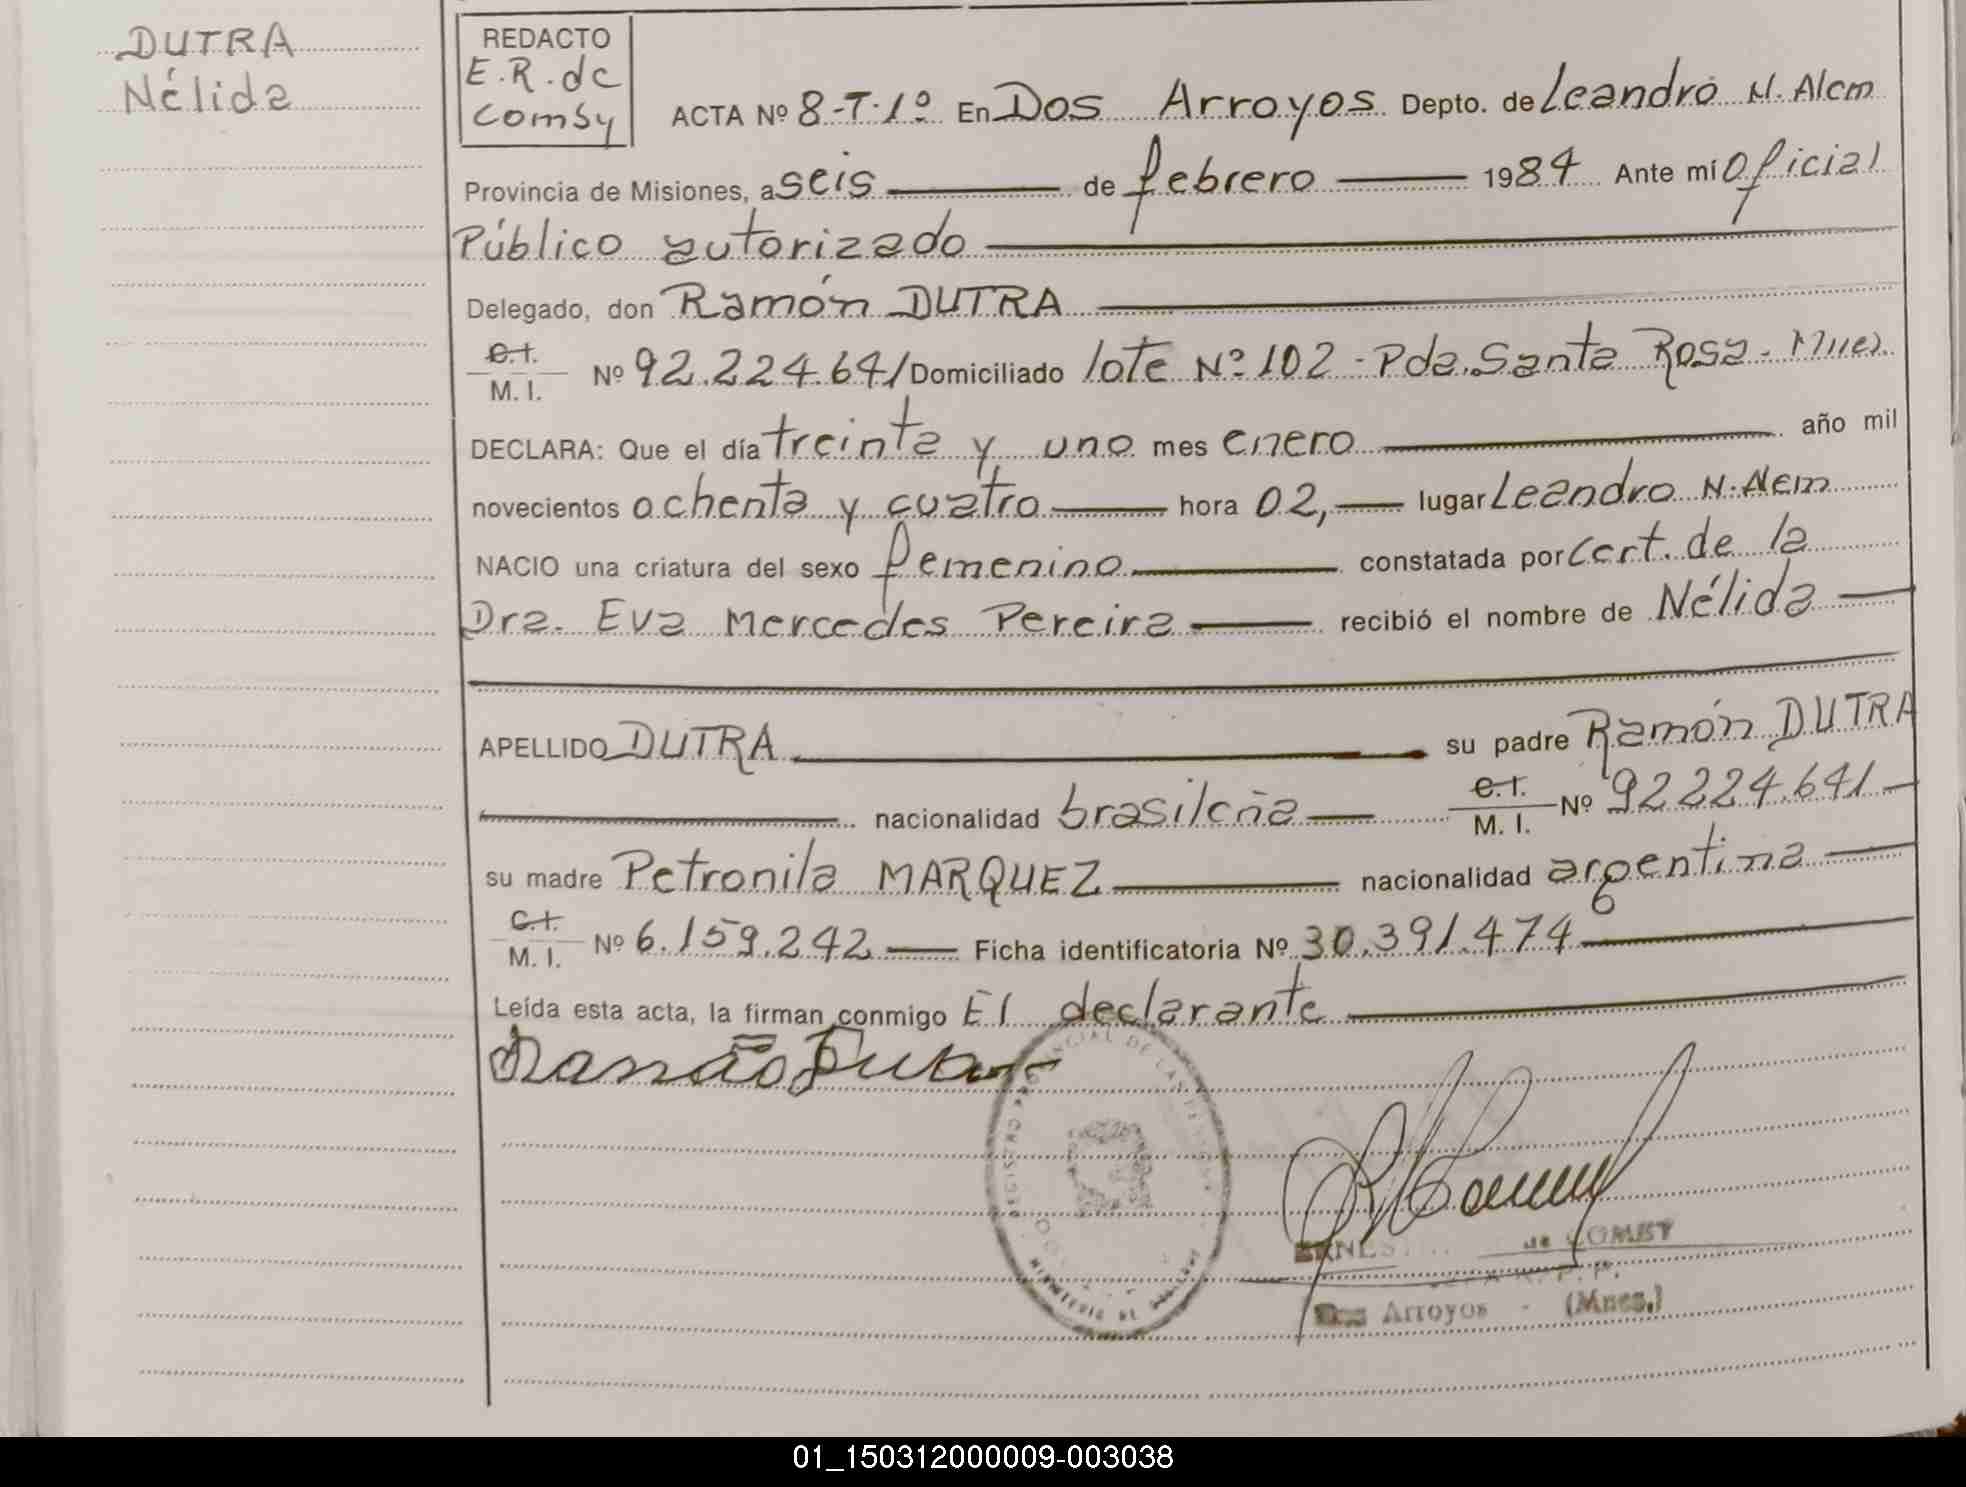 DUTRA
Nélida
REDACTO
E.R. de
Comby
ACTA Nº 8-T-1º En Dos Arroyos Depto. de Leandro N. Alem
Provincia de Misiones, a seis de febrero 1984 Ante mí Oficial
Público autorizado
Delegado, don Ramón DUTRA
C.I.
M. I. Nº 92.224.641 Domiciliado lote Nº 102 - Pda. Santa Rosa - Mnes.
DECLARA: Que el día treinta y uno mes enero año mil
novecientos ochenta y cuatro hora 02, lugar Leandro N. Alem
NACIO una criatura del sexo femenino constatada por Cert. de la
Dra. Eva Mercedes Pereira recibió el nombre de Nélida
APELLIDO DUTRA su padre Ramón DUTRA
nacionalidad brasileña C.I.
M. I. Nº 92.224.641
su madre Petronila MARQUEZ nacionalidad argentina
C.I.
M. I. Nº 6.159.242 Ficha identificatoria Nº 30.391.474
Leída esta acta, la firman conmigo El declarante
de COMBY
Dos Arroyos - (Mnes.)
01_150312000009-003038